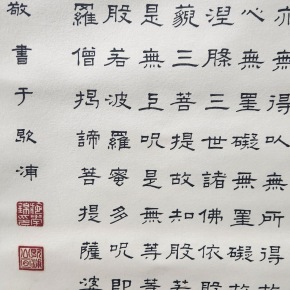 亦無得以無所得故
心無罣礙無罣礙故
涅槃三世諸佛依般
藐三菩提故知般若
是無上呪是無等等
般若波羅蜜多呪即
羅僧揭諦菩提薩婆
敬書于歇浦